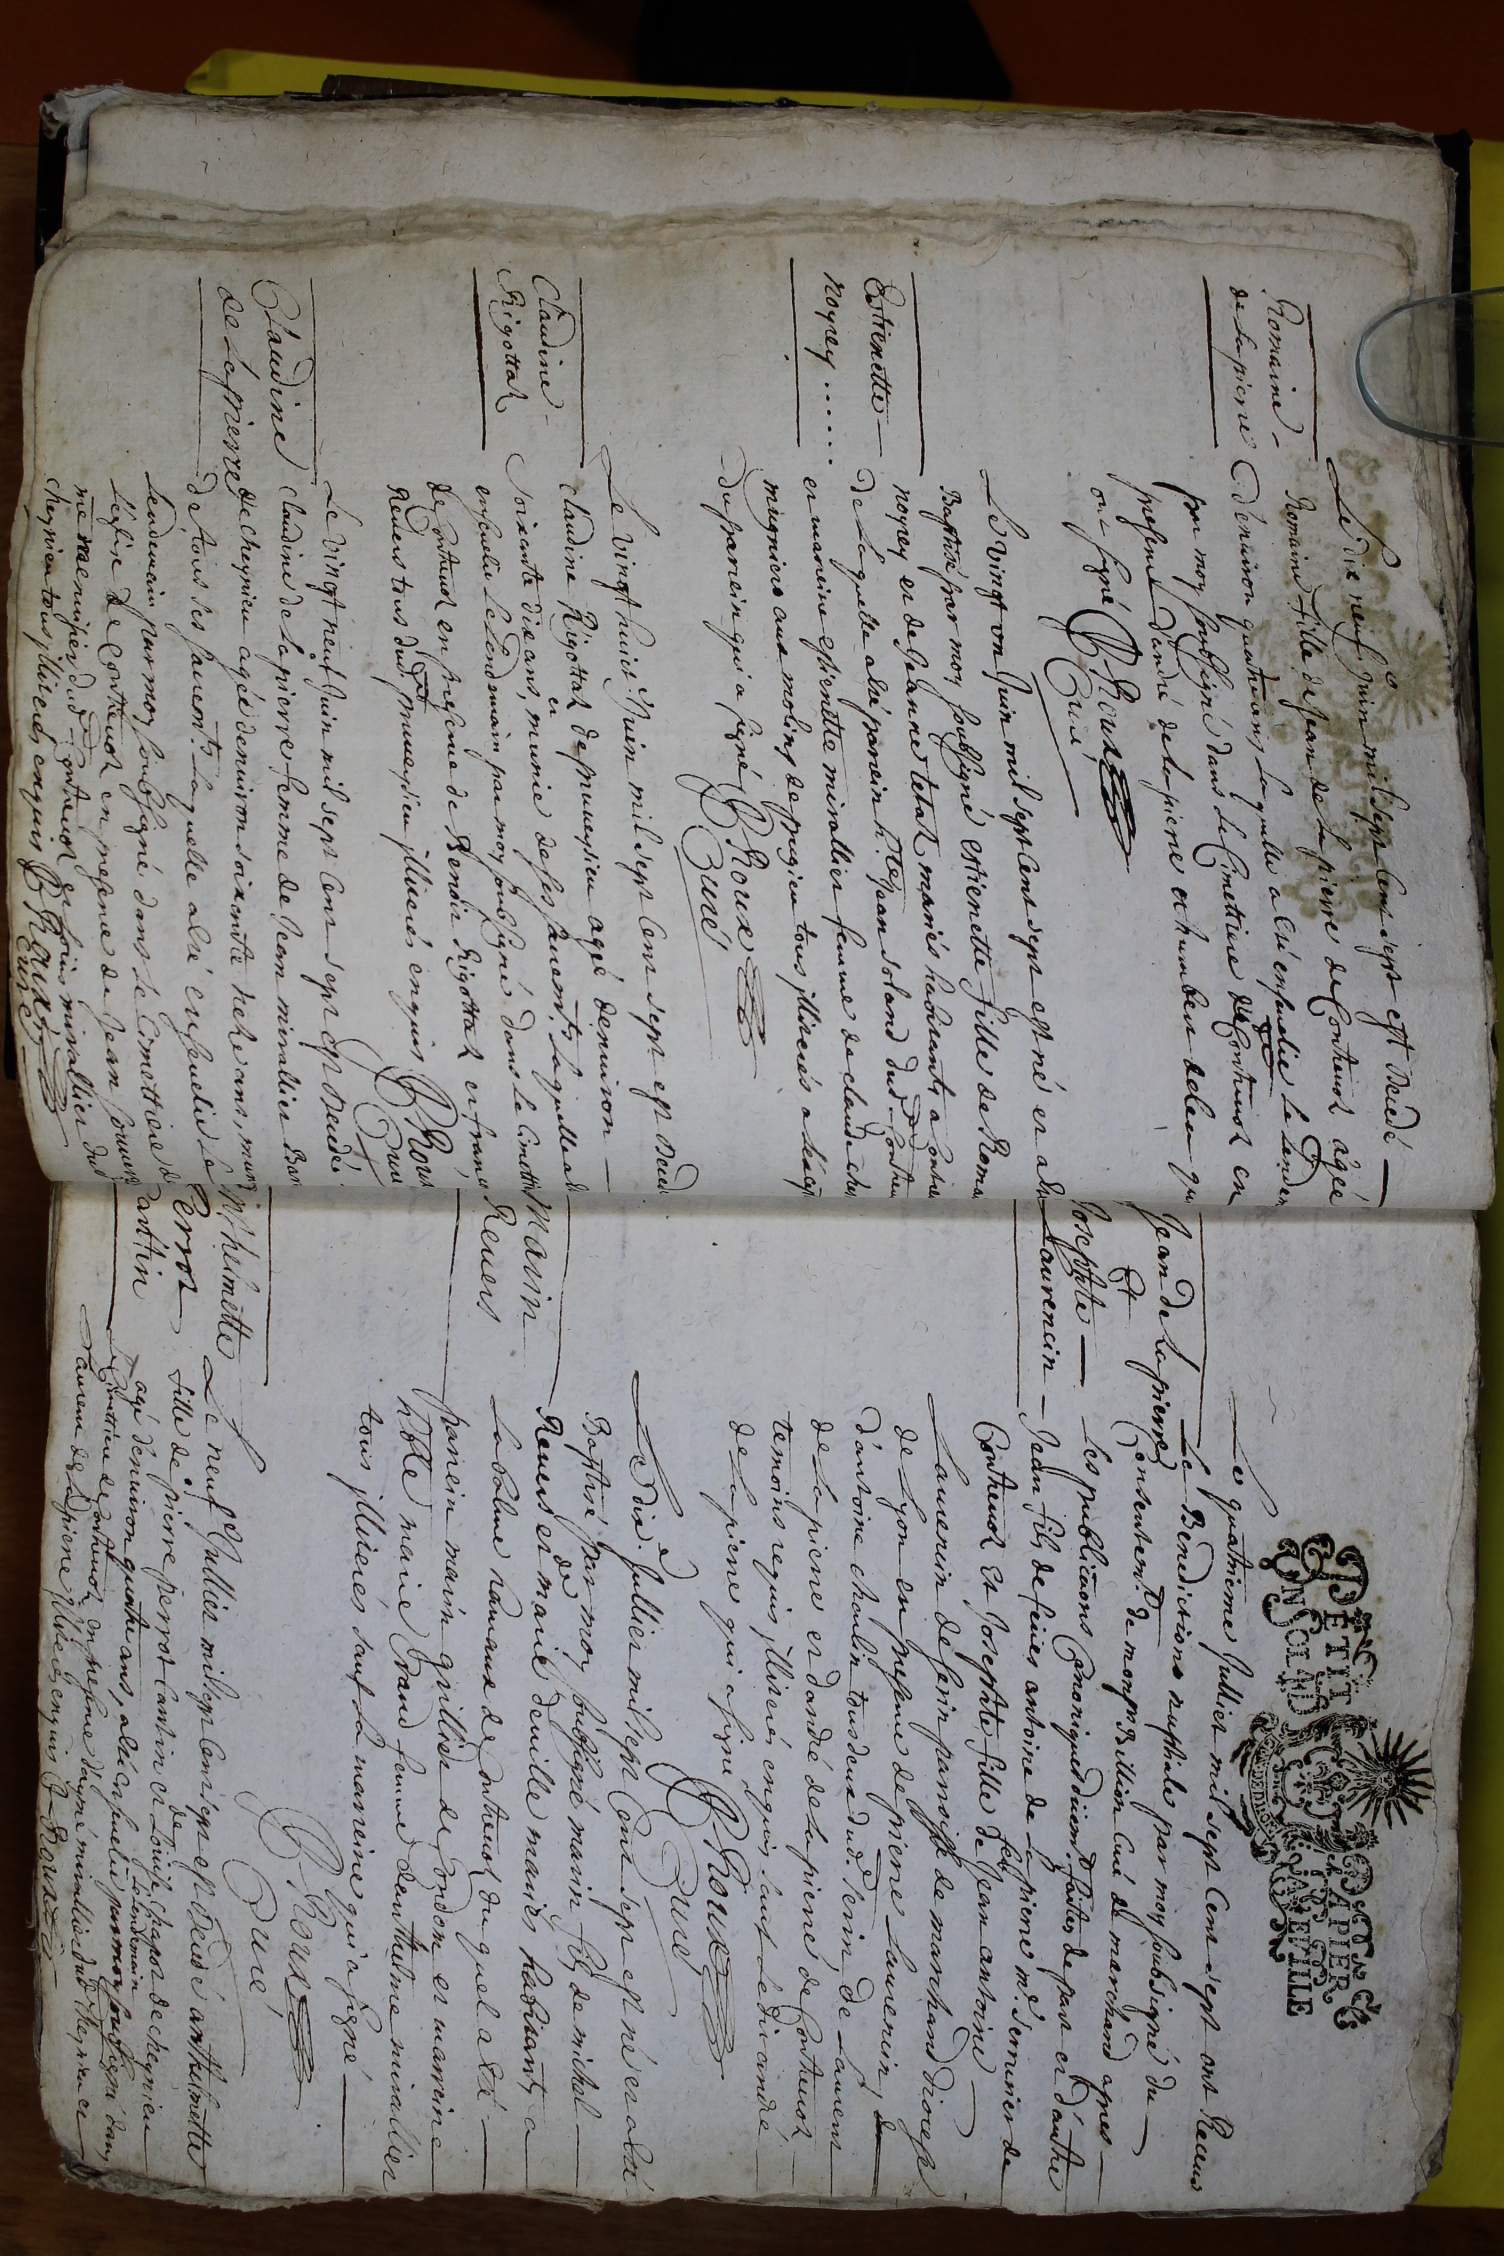 Romaine
de Lapierre
Le dix neuf Juin mil sept cent sept est decedé
Romaine fille de Jean de la pierre de Contrevoz agée
d'environ quatre ans laquelle a été ensevelie le lendem
par moy soubsigné dans le Cimettiere de Contrevoz en
presence d'andré de la pierre et humbert deleu qu
ont signé B Roux
Curé
Estienette
noyrey
Le vingt un Juin mil sept cent sept est né et a été
Baptisé par moy soubsigné estienette fille de Roma
noyrey et de Jeanne tetat mariés habitants a Contre
de laquelle a été parrein h.ble Jean Soland dud Contrev
et marreine estienette miraillier femme de claude
mugniers aux molins de pugieu tous illiterés a
du parrein qui a signé B Roux
Curé
Claudine
Rigottat
Le vingt huict Juin mil sept cent sept est deced
claudine Rigottat de prumeysieu agée d'environ
soixante dix ans, munie de ses sacrem.ts laquelle a
ensevelie le lendemain par moy soubsigné dans le Cimettier
de Contrevoz en presence de Benoit Rigottat et franc
Revers tous dud prumeysieu illiterés enquis B Roux
Curé
Claudine
de Lapierre
Le vingt neuf Juin mil sept cent sept est decedée
claudine de la pierre femme de Jean miraillier
de cheynieu agée d'environ soixante treize ans, munie
de tous ses sacrem.ts laquelle a été ensevelie le
lendemain par moy soubsigné dans le Cimettiere de
l'eglise de Contrevoz en presence de Jean
dud Contrevoz et Louis miraillier dud
cheynieu tous illiterés enquis B Roux
Curé
PETIT PAPIER
UN SOL LA FEUILLE
Jean de Lapierre
Et
Josephte
Laurencin
Le quatrieme Juillet mil sept cent sept ont Receus
la Benediction nuptiale par moy soubsigné du
Consentem.t de monsr Billion Curé de marchand apres
les publications Canoniquem.t faites de part et d'authre
Jean fils de feu antoine de la pierre m.e serrurier de
Contrevoz Et Josephte fille de feu Jean antoine
Laurencin de son parroisse de marchand diocese
de Lyon en presence de pierre Laurencin,
d'antoine choulin tous deux dud. de Laurent
de la pierre et d'andré de la pierre de Contrevoz
temoins requis illiterés enquis sauf ledit andré
de la pierre qui a signé B Roux
Curé
Marin
Revers
Le dix Juillet mil sept cent sept est né et a été
Baptisé par moy soubsigné marin fils de michel
Revers et de marie deville mariés habitants a
la balme hameau de Contrevoz duquel a été
parrein marin grillot de Condom et marreine
h.ble marie Brand femme d'anthelme miraillier
tous illiterés sauf la marreine qui a signé
B Roux
Curé
Anthelmette
Perrot
Cantin
Le neuf Juillet mil sept cent sept est decedé anthelmette
fille de pierre perrot Cantin et de Louise chapot de cheynieu
agé d'environ quatre ans, a été ensevelie le lendemain par moy soubsigné dans
le Cimettiere de Contrevoz en presence d'aymé miraillier dud cheynieu et
Laurent de Lapierre illiterés enquis B Roux